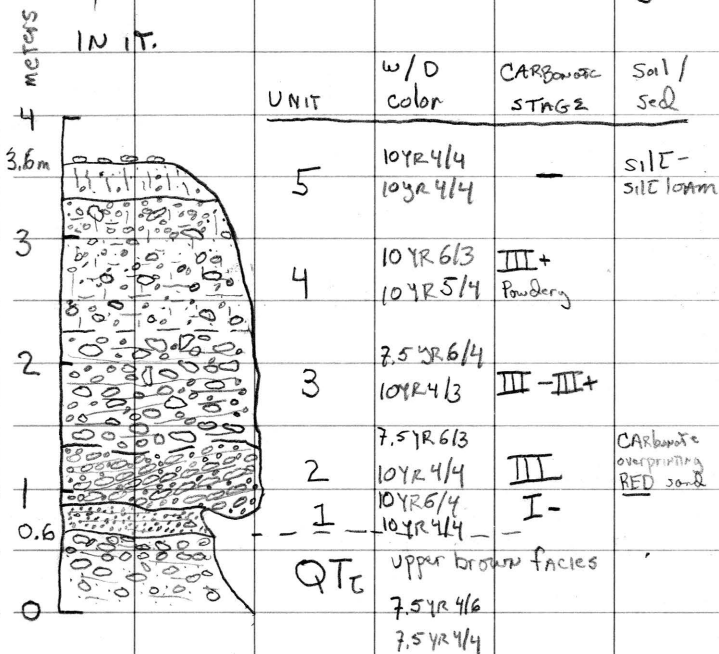 meters
IN IT.
UNIT
W/D color
CARBONATE STAGE
Soil / Sed
4
3.6m
5
10YR 4/4
10YR 4/4
–
SILT -
SILT loam
3
4
10 YR 6/3
10 YR 5/4
III+
Powdery
2
3
7.5 YR 6/4
10YR 4/3
III - III+
2
7.5YR 6/3
10YR 4/4
III
CARbonate
overprinting
RED sand
1
1
10YR 6/4
10YR 4/4
I-
0.6
QTt
upper brown facies
7.5YR 4/6
7.5YR 4/4
0